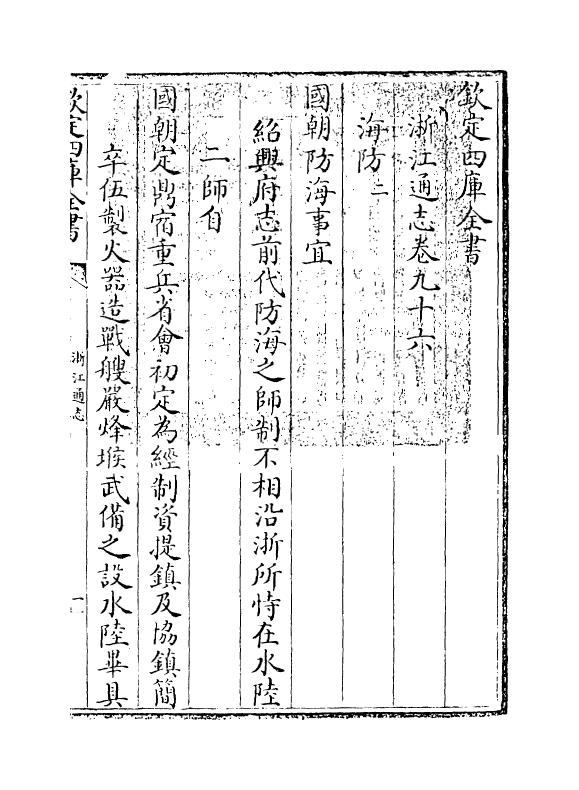 欽定四庫全書
浙江通志卷九十六
海防二
國朝防海事宜
紹興府志前代防海之師制不相沿浙所恃在水陸
二師自
國朝定鼎宿重兵省會初定為經制資提鎮及協鎮簡
卒伍製火器造戰艘嚴烽堠武備之設水陸畢具
欽定四庫全書
浙江通志
一